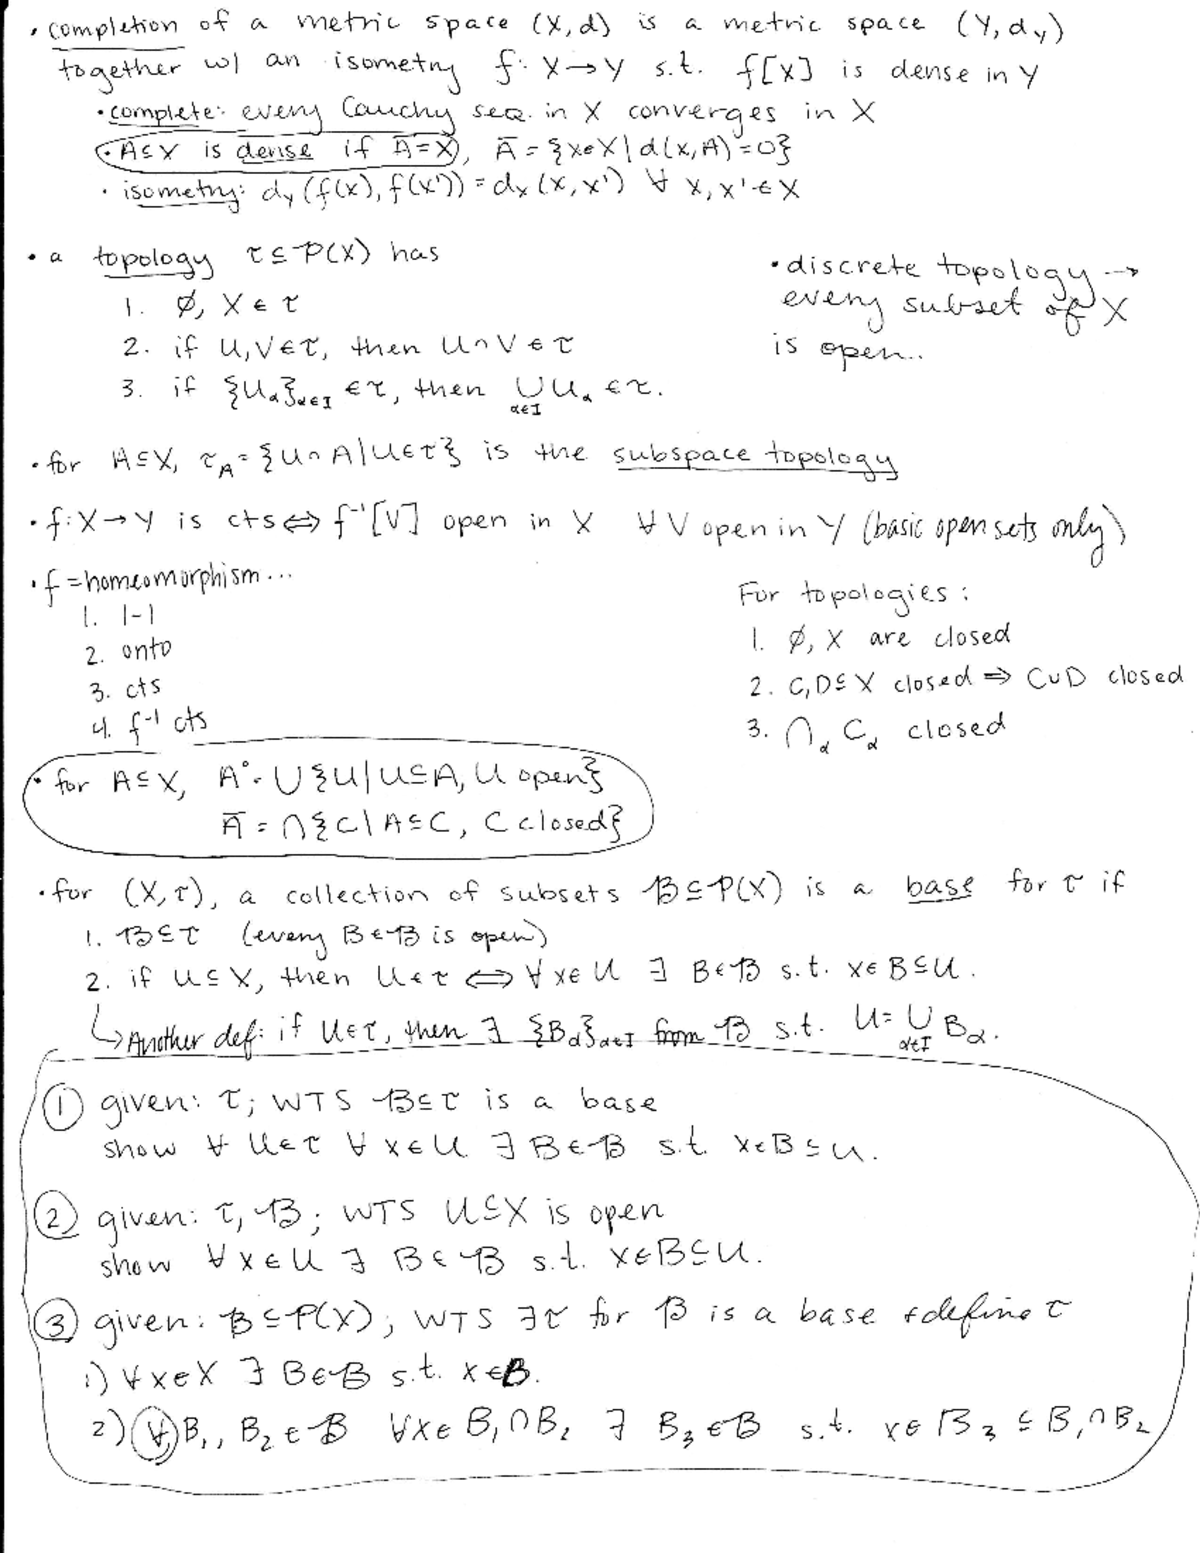 • completion of a metric space (X,d) is a metric space (Y, d_Y)
together w/ an isometry f: X→Y s.t. f[X] is dense in Y
• complete: every Cauchy seq. in X converges in X
• A⊆X is dense if Ā=X, Ā = {x∈X | d(x,A)=0}
• isometry: d_Y(f(x), f(x')) = d_X(x,x') ∀ x,x'∈X
• a topology τ⊆P(X) has
1. ∅, X ∈ τ
2. if U,V∈τ, then U∩V ∈ τ
3. if {U_α}_{α∈I} ∈ τ, then ∪_{α∈I} U_α ∈ τ.
• discrete topology →
every subset of X
is open..
• for A⊆X, τ_A = {U∩A | U∈τ} is the subspace topology
• f: X→Y is cts ⟺ f⁻¹[V] open in X ∀ V open in Y (basic open sets only)
• f = homeomorphism...
1. 1-1
2. onto
3. cts
4. f⁻¹ cts
For topologies:
1. ∅, X are closed
2. C,D⊆X closed ⇒ C∪D closed
3. ∩_α C_α closed
• for A⊆X, A° = ∪{U | U⊆A, U open}
Ā = ∩{C | A⊆C, C closed}
• for (X,τ), a collection of subsets ℬ⊆P(X) is a base for τ if
1. ℬ⊆τ (every B∈ℬ is open)
2. if U⊆X, then U∈τ ⟺ ∀ x∈U ∃ B∈ℬ s.t. x∈B⊆U.
↳ Another def: if U∈τ, then ∃ {B_α}_{α∈I} from ℬ s.t. U = ∪_{α∈I} B_α.
① given: τ; WTS ℬ⊆τ is a base
show ∀ U∈τ ∀ x∈U ∃ B∈ℬ s.t. x∈B⊆U.
② given: τ, ℬ; WTS U⊆X is open
show ∀ x∈U ∃ B∈ℬ s.t. x∈B⊆U.
③ given: ℬ⊆P(X); WTS ∃τ for ℬ is a base + define τ
1) ∀x∈X ∃ B∈ℬ s.t. x∈B.
2) ∀ B₁, B₂ ∈ ℬ ∀x∈B₁∩B₂ ∃ B₃∈ℬ s.t. x∈B₃⊆B₁∩B₂